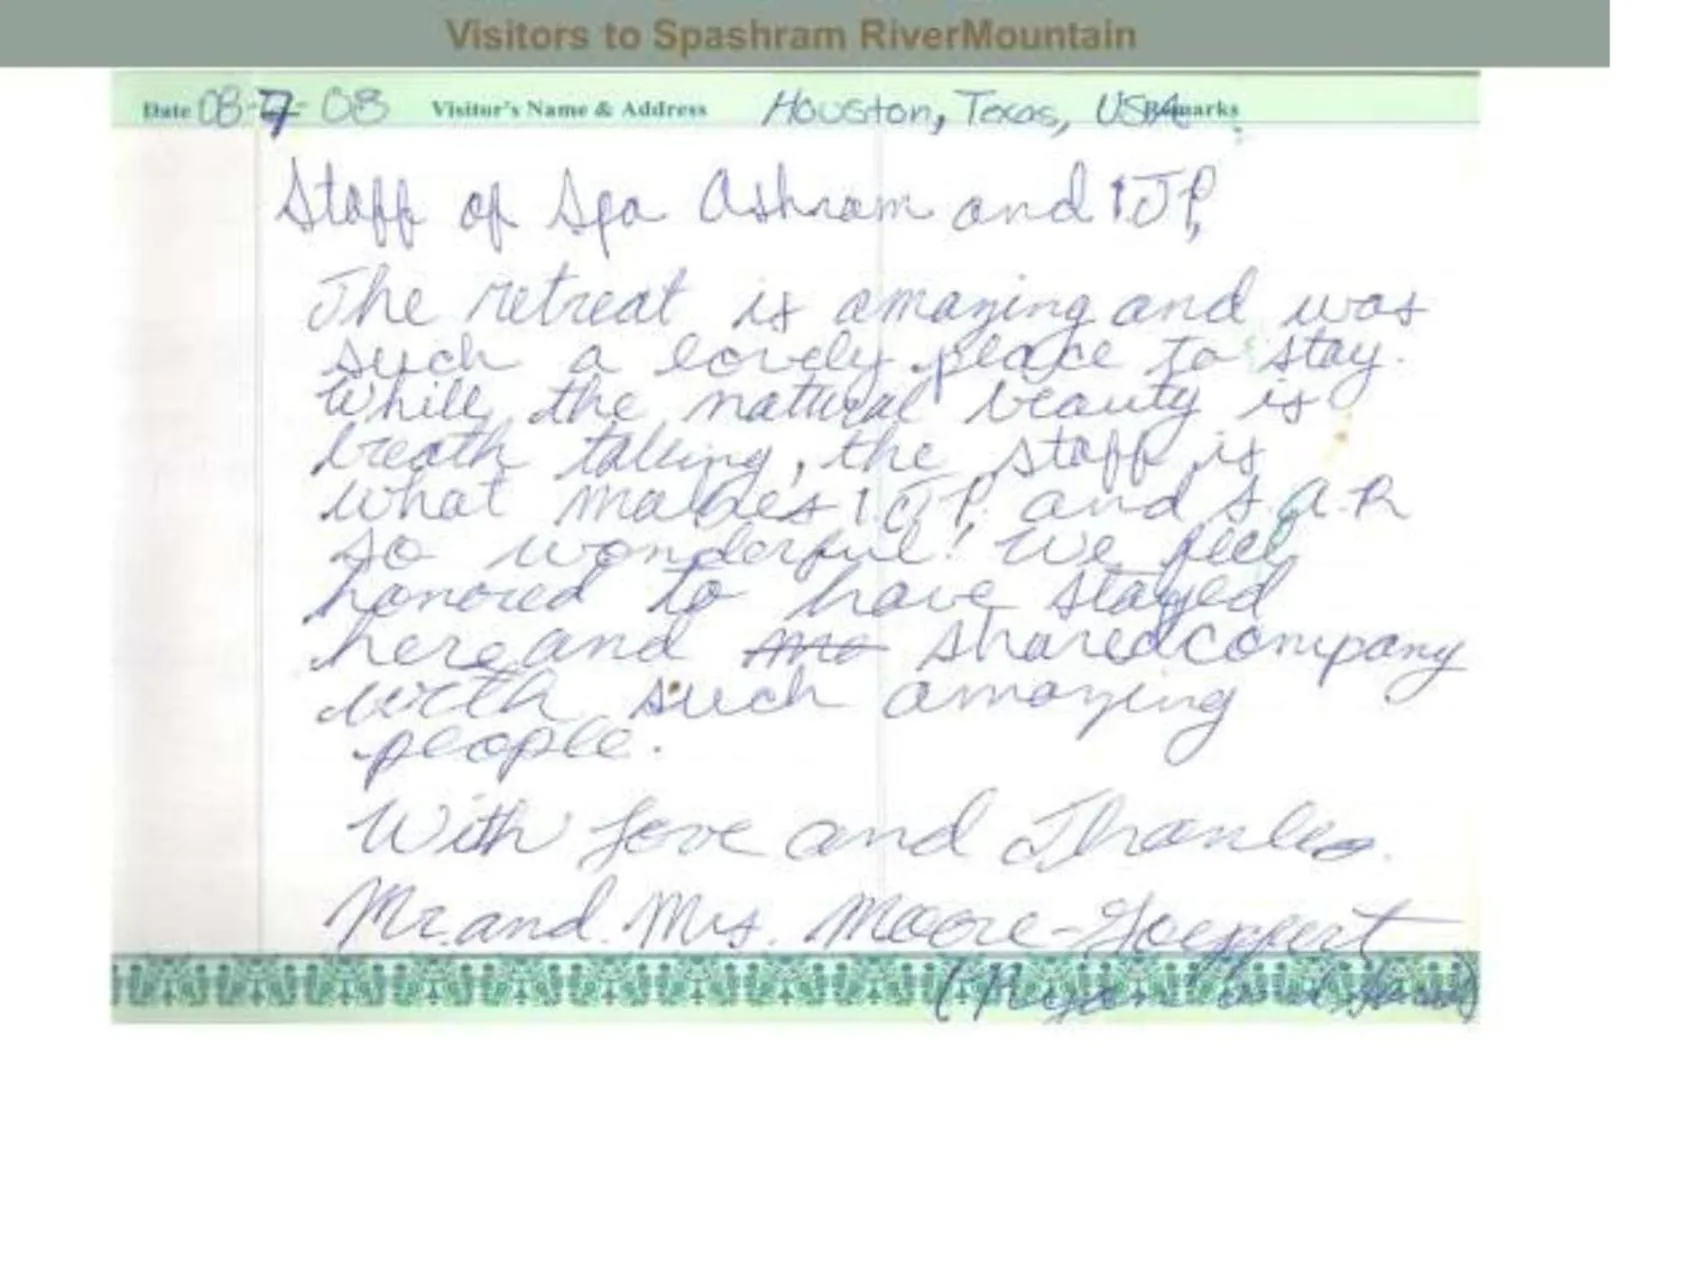 Visitors to Spashram RiverMountain
Date 08-7-08 Visitor's Name & Address Houston, Texas, USA Remarks
Staff of Spa Ashram and IJP,
The retreat is amazing and was
such a lovely place to stay.
While the natural beauty is
breath taking, the staff is
what makes I.J.P. and S.A.R
so wonderful! We feel
honored to have stayed
here and shared company
with such amazing
people.
With Love and Thanks.
Mr. and Mrs. Moore-Goeppert
(Ryan and